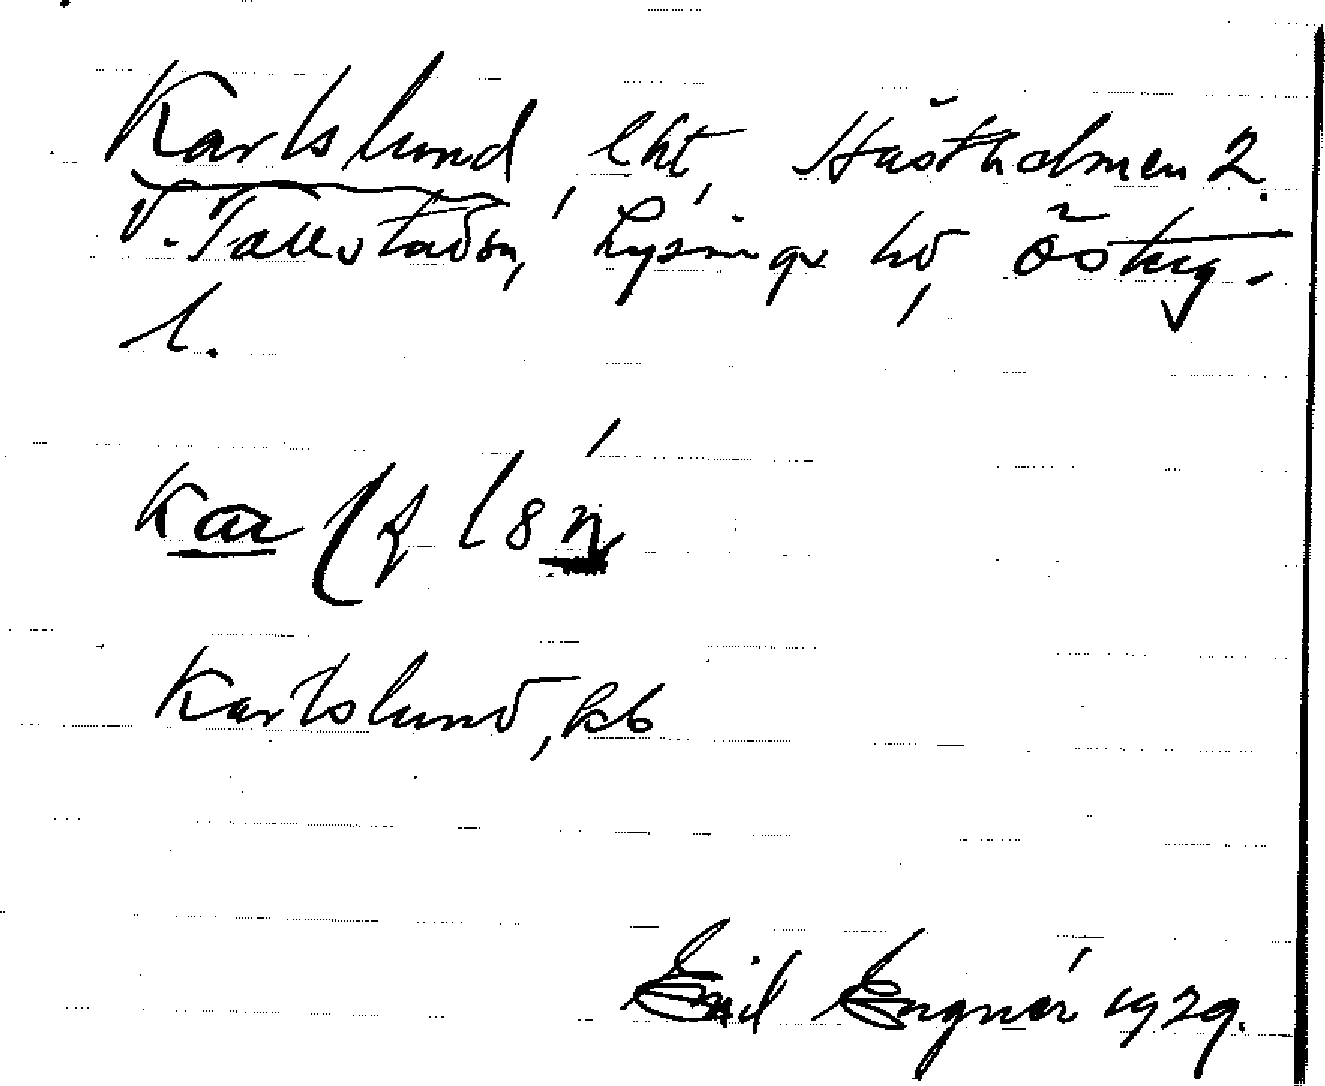 Karlslund, lht, Hästholmen 2.
V. Tollstadsn, Lysings hd, Östergö-
l.
Karlslund, kb
Emil Engnér 1929.